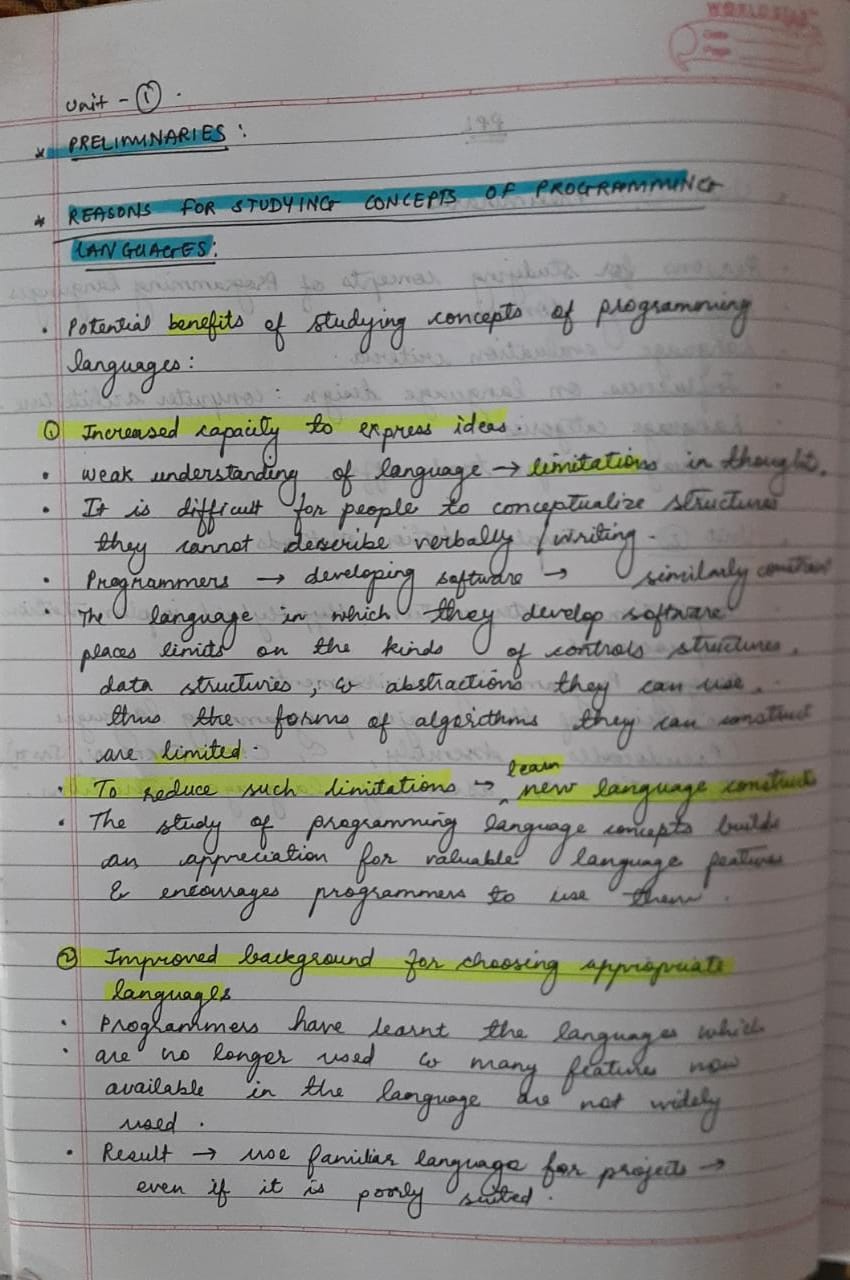 WORLDSTAR
Date
Page
Unit - ① .
* PRELIMINARIES :
* REASONS FOR STUDYING CONCEPTS OF PROGRAMMING
LANGUAGES:
• Potential benefits of studying concepts of programming
languages:
① Increased capacity to express ideas.
• weak understanding of language → limitations in thought.
• It is difficult for people to conceptualize structures
they cannot describe verbally / writing.
• Programmers → developing software → similarly constrain
• The language in which they develop software
places limits on the kinds of controls structures,
data structures, & abstractions they can use,
thus the forms of algorithms they can construct
are limited.
learn
• To reduce such limitations → ^ new language constructs
• The study of programming language concepts builds
an appreciation for valuable language features
& encourages programmers to use them.
② Improved background for choosing appropriate
languages
• Programmers have learnt the languages which
• are no longer used & many features now
available in the language are not widely
used.
• Result → use familiar language for projects →
even if it is poorly suited.